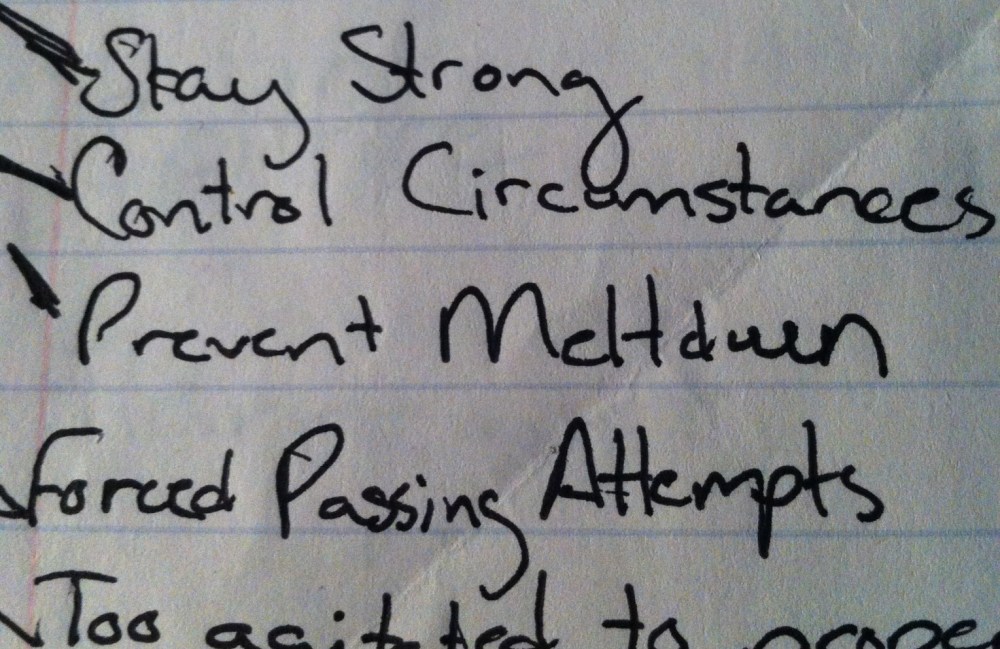 Stay Strong
Control Circumstances
Prevent Meltdown
Forced Passing Attempts
Too agitated to